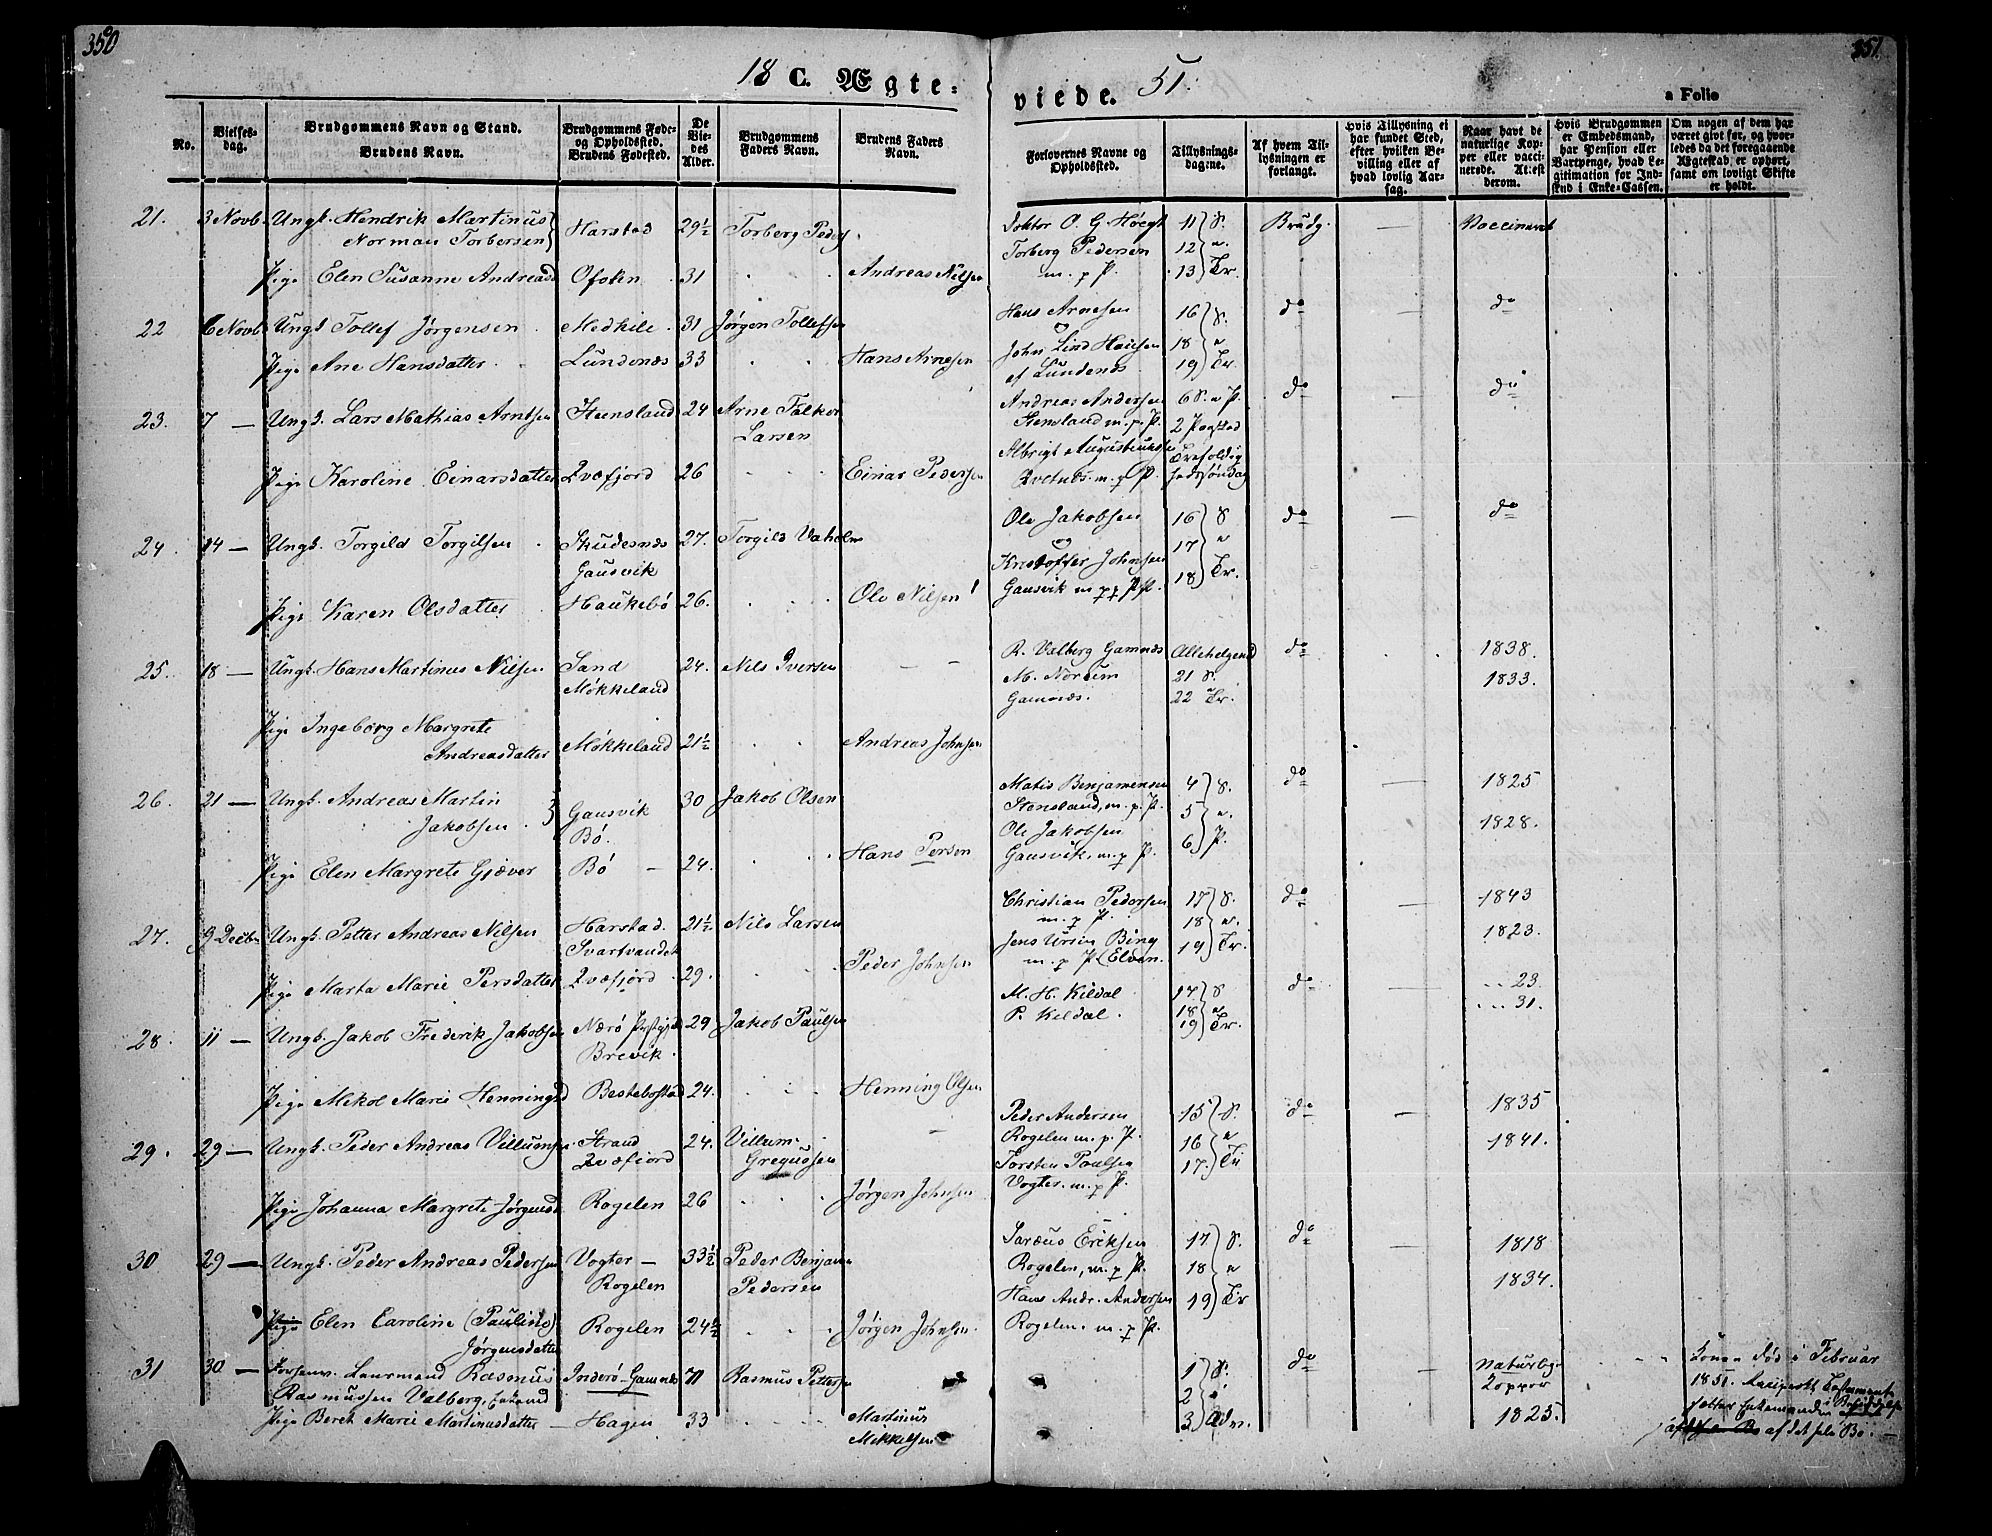 350
351.
18 C. Ægte=
viede. 51.
a Folio
No.
Vielses-
dag.
Brudgommens Navn og Stand.
Brudens Navn.
Brudgommens Føde-
og Opholdsted.
Brudens Fødested.
De
Vie-
des
Alder.
Brudgommens
Faders Navn.
Brudens Faders
Navn.
Forlovernes Navne og
Opholdsted.
Tillysnings-
dagene.
Af hvem Til-
lysningen er
forlangt.
Hvis Tillysning ei
har fundet Sted,
efter hvilken Be-
villing eller af
hvad lovlig Aar-
sag.
Naar havt de
naturlige Kop-
per eller vacci-
nerede. Attest
derom.
Hvis Brudgommen
er Embedsmand,
har Pension eller
Vartpenge, hvad Le-
gitimation for Ind-
skud i Enke-Cassen.
Om nogen af dem har
været givt før, og hvor-
ledes da det foregaaende
Ægteskab er ophørt,
samt om lovligt Skifte
er holdt.
21. 3 Novb. Ungk. Hendrik Martinus
Norman Torbersen Harstad 29½ Torberg Peders
Pige Elen Susanne Andreasd Ofoten 31 Andreas Nilsen
Doktor O. G. Høegh 11 S. Brudg. — Vaccineret
Torberg Pedersen 12 n.
m. p. P. 13 Tr.
22 6 Novb Ungk. Tollef Jørgensen Medkile 31 Jørgen Tollefsen
Pige Ane Hansdatter Lundenæs 33 Hans Arnesen
Hans Arnesen 16 S. do — do
og
John Lind Hansen 18 n
af Lundenæs 19 Tr.
23. 7 — Ungk. Lars Mathias Arntsen Stensland 24 Arne Falkor
Larsen
Pige Karoline Einarsdatter Qvæfjord 26 Einar Pedersen
Andreas Andersen 6 S. n P. do — do
Stensland m. p. P. 2
Albrigt Augustinusen
Qvetnæs m. p. P.
24. 14 — Ungk. Torgild Torgilsen Skudesnæs 27. Torgild Vaholm
Gausvik
Pige Karen Olsdatter Haukebø 26. Ole Nilsen
Ole Jakobsen 16 S do — do
og 17 n
Kristoffer Johnsen
Gausvik m p P. 18 Tr.
25. 18 — Ungk. Hans Martinus Nilsen Sand 24. Nils Iversen — —
Møkkeland
Pige Ingeborg Margrete
Andreasdatter Møkkeland 21½ Andreas Johnsen
R. Valberg Gamnæs Allehelgend do 1838.
M. Norum 21 S. 1833.
Gamnæs. 22 Tr.
26. 21 — Ungk. Andreas Martin 30 Jakob Olsen
Jakobsen. Gausvik
Bø.
Pige Elen Margrete Gjæver Bø — 24. Hans Persen
Matis Benjamensen 4 S. do — 1825
Stensland, m. p. P. 5 n. 1828.
Ole Jakobsen
Gausvik, m. p P. 6 P.
27. 9 Decbr. Ungk. Petter Andreas Nilsen Harstad. 21½ Nils Larsen
Svartvandet
Pige Marta Marie Persdatter Qvæfjord 29. Peder Johnsen
Christian Pedersen 17 S. do — 1843
m. p P. 18 n. 1823.
Jens Ursin Bing 19 Tr.
m. p P. (Elven.
28. 11 — Ungk. Jakob Frederik Jakobsen Nærø Præstgjd 29 Jakob Paulsen
Brevik.
Pige Mikol Marie Henningsd Bestebostad 24. Henning Olsen
M. H. Kildal 17 S do — 23.
P. Kildal. 18 n 31.
19 Tr.
29. 29 — Ungk. Peder Andreas Villumsen Strand 24. Villum
Qvæfjord Gregusen
Pige Johanna Margrete Jørgensd Rogelen 26 Jørgen Johnsen
Peder Andersen 15 S. do — 1835
Rogelen m. p. P. 16 n 1841.
Torsten Paulsen 17. Tr
Vogter. m. p P.
30 29 — Ungk. Peder Andreas Pedersen Vogter — 33½ Peder Benjam
Rogelen Pedersen
Pige Elen Caroline (Pauline) Rogelen 24½ Jørgen Johnsen
Jørgensdatter
Saræus Eriksen 17 S. do — 1818
Rogelen, m. p P. 18 n 1834.
Hans Andr. Andersen 19 Tr
Rogelen. m. p P.
31 30 — Lensmand Rasmus Inderø—Gamnæs Rasmus Petters
Rasmussen Valberg, Enkemd
Pige Beret Marie Martinusdatter — Hagen 33 Martinus
Mikkelsen
1 S. do — Naturlige
2 Kopper
3 Adv. 1825.
Konen død i Februar
1851.
af det fele Bo. —